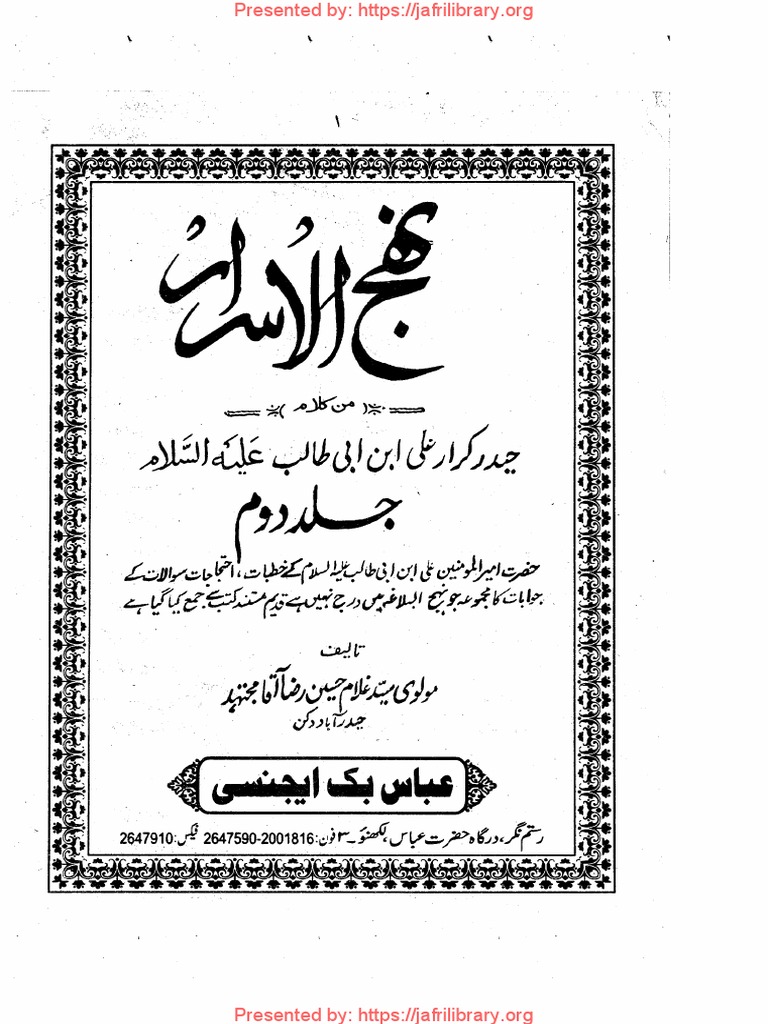 Presented by: https://jafrilibrary.org
۱
نهج الاسرار
من کلام
حیدر کرار علی ابن ابی طالب عَلَیْہِ السَّلام
جلد دوم
حضرت امیر المومنین علی ابن ابی طالب علیہ السلام کے خطبات، احتجاجات سوالات کے
جوابات کا مجموعہ جو نہج البلاغہ میں درج نہیں ہے قدیم مستند کتب سے جمع کیا گیا ہے
تالیف
مولوی سیّد غلام حسین رضا آقا مجتہد
حیدرآباد دکن
عباس بک ایجنسی
رستم نگر، درگاہ حضرت عباس، لکھنؤ۔۳ فون: 2001816-2647590 فیکس: 2647910
Presented by: https://jafrilibrary.org